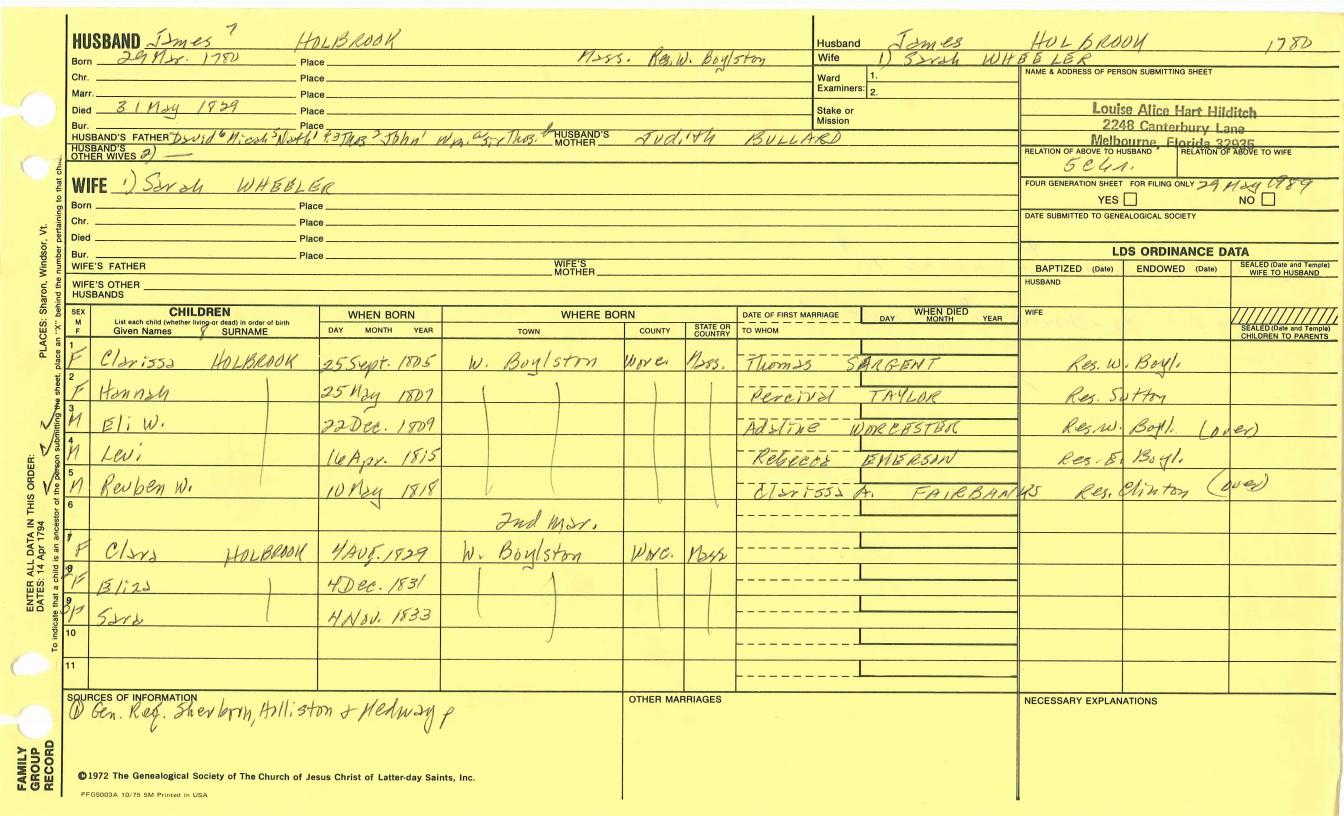 HUSBAND James 7 HOLBROOK
Born 29 Mar. 1780 Place Mass. Res. W. Boylston
Chr. Place
Marr. Place
Died 31 May 1829 Place
Bur. Place
HUSBAND'S FATHER David 6 Micah 5 Nath'l 4 Thos 2 John 1 Wm. Thos. HUSBAND'S MOTHER Judith BULLARD
HUSBAND'S OTHER WIVES 2) —
Husband James HOLBROOK 1780
Wife 1) Sarah WHEELER
Ward Examiners: 1.
2.
Stake or Mission
NAME & ADDRESS OF PERSON SUBMITTING SHEET
Louise Alice Hart Hilditch
2248 Canterbury Lane
Melbourne, Florida 32935
RELATION OF ABOVE TO HUSBAND RELATION OF ABOVE TO WIFE
5 C 6 r.
FOUR GENERATION SHEET FOR FILING ONLY 29 May 1989
YES NO
DATE SUBMITTED TO GENEALOGICAL SOCIETY
WIFE 1) Sarah WHEELER
Born Place
Chr. Place
Died Place
Bur. Place
WIFE'S FATHER WIFE'S MOTHER
WIFE'S OTHER HUSBANDS
LDS ORDINANCE DATA
BAPTIZED (Date) ENDOWED (Date) SEALED (Date and Temple) WIFE TO HUSBAND
HUSBAND
WIFE
SEALED (Date and Temple) CHILDREN TO PARENTS
SEX M F
CHILDREN
List each child (whether living or dead) in order of birth
Given Names 8 SURNAME
WHEN BORN
DAY MONTH YEAR
WHERE BORN
TOWN COUNTY STATE OR COUNTRY
DATE OF FIRST MARRIAGE
TO WHOM
WHEN DIED
DAY MONTH YEAR
1 F Clarissa HOLBROOK 25 Sept. 1805 W. Boylston Worc. Mass. Thomas SARGENT Res. W. Boyl.
2 F Hannah 25 May 1807 Percival TAYLOR Res. Sutton
3 M Eli W. 22 Dec. 1809 Adaline WORCESTER Res. W. Boyl. (over)
4 M Levi 16 Apr. 1815 Rebecca EMERSON Res. E. Boyl.
5 M Reuben W. 10 May 1818 Clarissa A. FAIRBANKS Res. Clinton (over)
6 2nd mar.
7 F Clara HOLBROOK 4 Aug. 1829 W. Boylston Worc. Mass
8 F Eliza 4 Dec. 1831
9 F Sara 4 Nov. 1833
10
11
SOURCES OF INFORMATION
① Gen. Reg. Sherborn, Holliston & Medway p
OTHER MARRIAGES
NECESSARY EXPLANATIONS
©1972 The Genealogical Society of The Church of Jesus Christ of Latter-day Saints, Inc.
PFGS003A 10/75 5M Printed in USA
FAMILY GROUP RECORD
ENTER ALL DATA IN THIS ORDER:
DATES: 14 Apr 1794 PLACES: Sharon, Windsor, Vt.
To indicate that a child is an ancestor of the person submitting the sheet, place an "X" behind the number pertaining to that